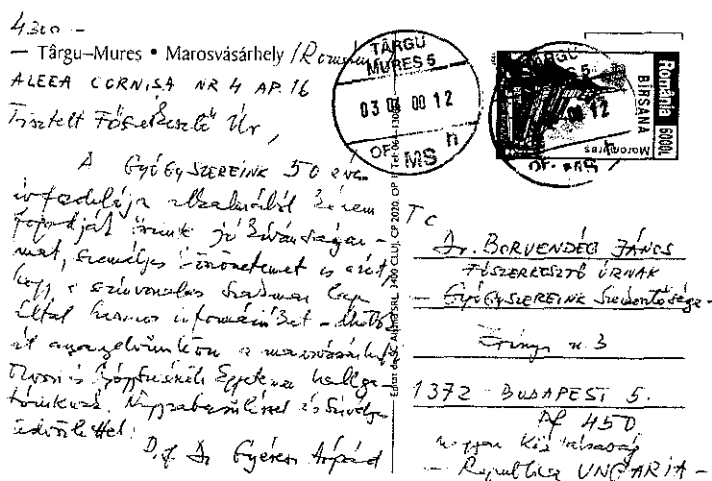 4300 -
— Târgu-Mures • Marosvásárhely /Romania
ALEEA CORNISA NR 4 AP. 16
Tisztelt Főszerkesztő Úr,
A GYÓGYSZEREINK 50 éves
évfordulója alkalmából kérem
fogadják őszinte jó kívánságai-
mat, személyes köszönetemet is azért,
hogy a színvonalas szakmai lap
által hasznos információkat
át anyanyelvünkön a marosvásárhelyi
Orvosi és Gyógyszerészeti Egyetem hallga-
tóinknak. Nagyrabecsüléssel és szívélyes
üdvözlettel:
Prof Dr Gyéresi Árpád
Editat de SC
SRL, 3400 CLUJ, CP 2020, OP
TÂRGU
MURES 5
03 00 12
OF. MS h
TÂRGU
MURES 5
00 12
OF. MS h
România 6000L
BÎRSANA
Maramureş
T C
Dr. BORVENDÉG JÁNOS
FŐSZERKESZTŐ ÚRNAK
— GYÓGYSZEREINK Szerkesztősége -
Zrínyi u. 3
1372 - BUDAPEST 5.
Pf 450
Magyar Köztársaság
— Republica UNGARIA -